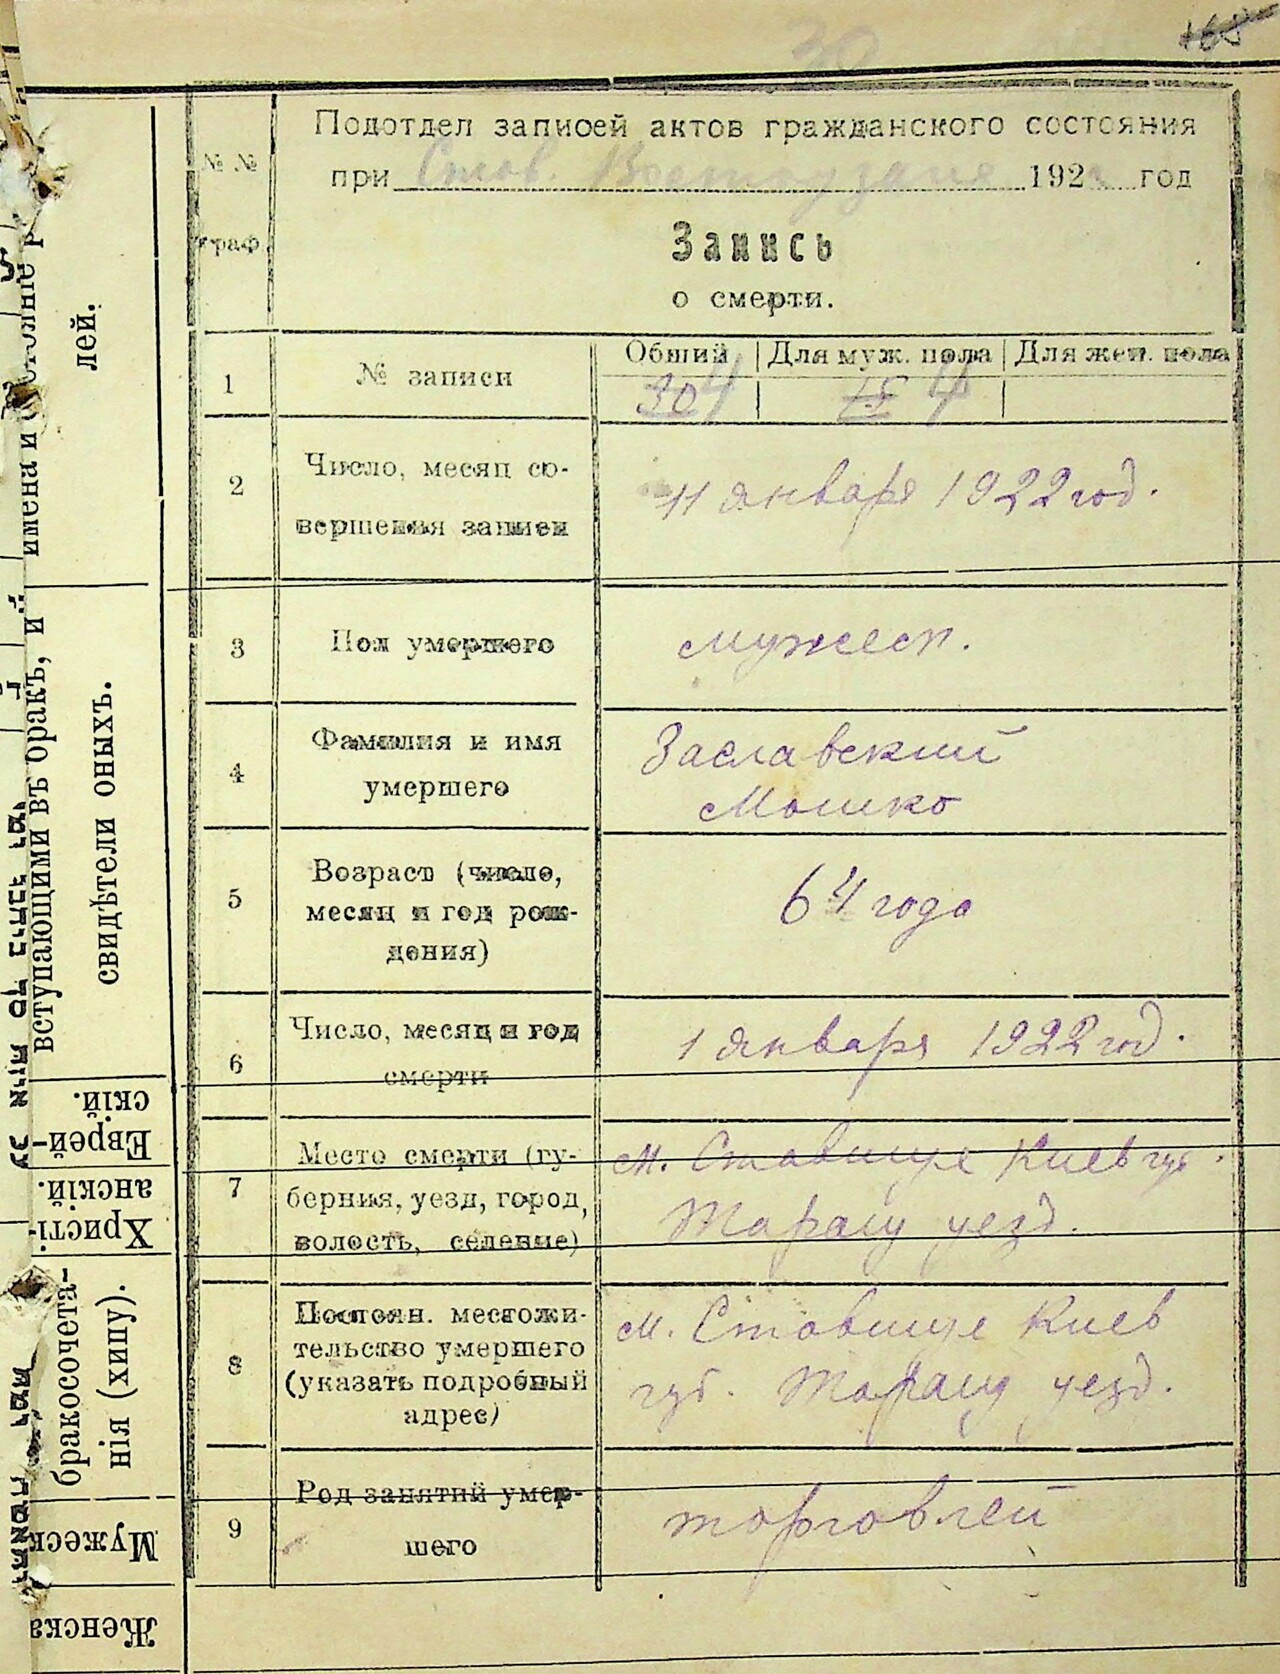 30
165
Подотдел записей актов гражданского состояния
при Став. 192 год
№ №
граф.
Запись
о смерти.
1 № записи Общий Для муж. пола Для жен. пола
30 4 4
2 Число, месяц со-
вершения записи
11 января 1922 год.
3 Пол умершего мужеск.
4 Фамилия и имя
умершего
Заславский
Мошко
5 Возраст (число,
месяц и год рож-
дения)
64 года
6 Число, месяц и год
смерти
1 января 1922 год.
7 Место смерти (гу-
берния, уезд, город,
волость, селение)
м. Ставище Киев губ.
Таращ уезд.
8 Постоян. местожи-
тельство умершего
(указать подробный
адрес)
м. Ставище Киев
губ. Таращ уезд.
9 Род занятий умер-
шего
торговлей
лей.
имена и
вступающими въ бракъ, и
свидѣтели оныхъ.
Еврей-
скій.
Христі-
анскій.
бракосочета-
нія (хипу).
Мужеск
Женска